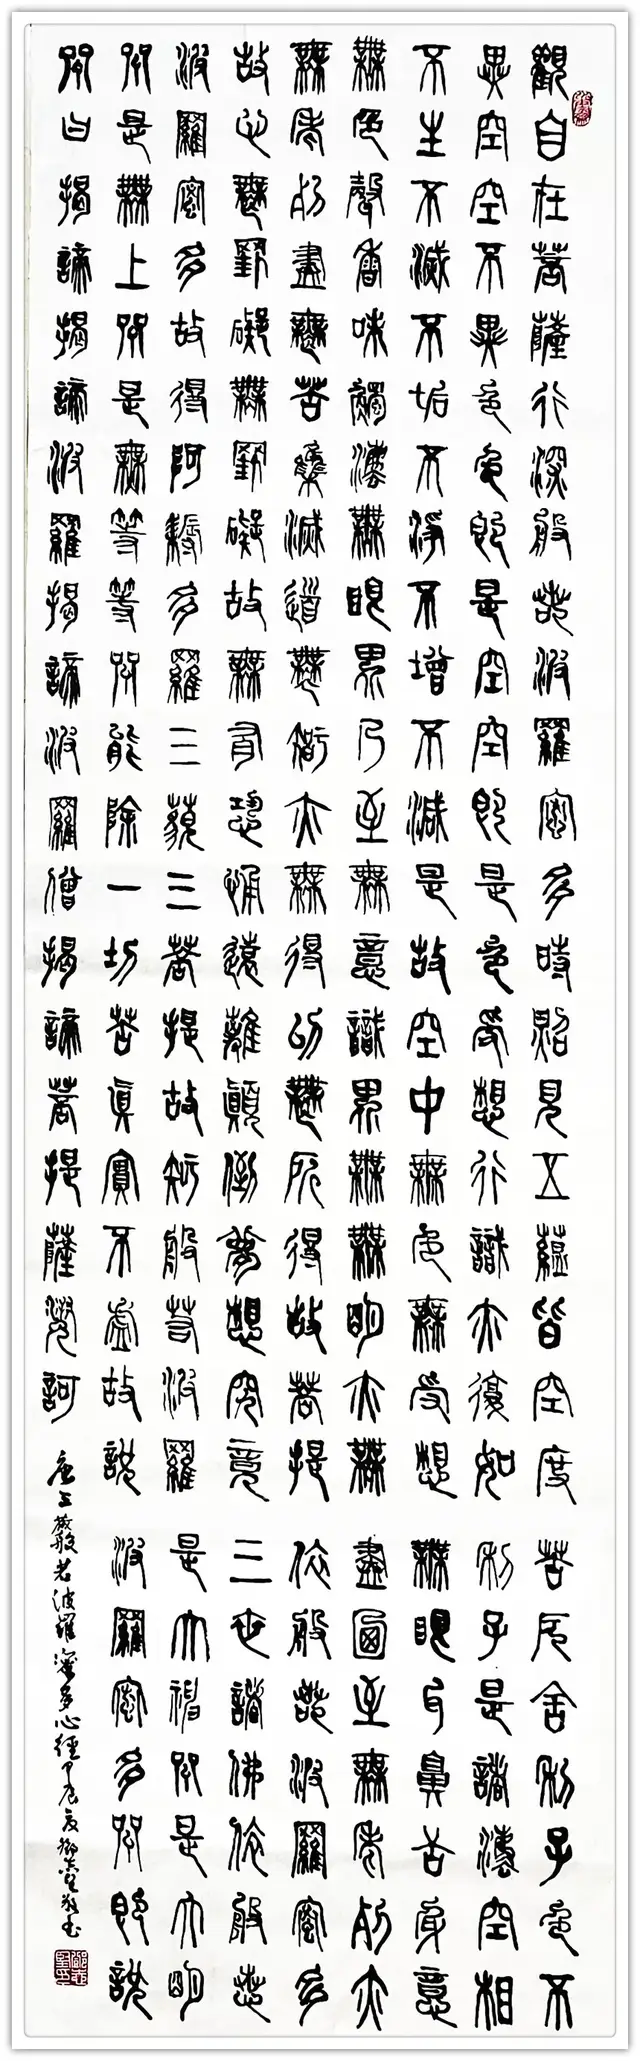 觀自在菩薩行深般若波羅密多時照見五蘊皆空度苦厄舍利子色不
異空空不異色色即是空空即是色受想行識亦復如利子是諸法空相
不生不滅不垢不淨不增不減是故空中無色無受想無眼耳鼻舌身意
無色聲香味觸法無眼界乃至無意識界無無明亦無盡乃至無老死亦
無老死盡無苦集滅道無智亦無得以無所得故菩提依般若波羅密多
故心無罣礙無罣礙故無有恐怖遠離顛倒夢想究竟三世諸佛依般若
波羅密多故得阿耨多羅三藐三菩提故知般若波羅是大神咒是大明
咒是無上咒是無等等咒能除一切苦真實不虛故說波羅密多咒即說
咒曰揭諦揭諦波羅揭諦波羅僧揭諦菩提薩婆訶
唐三藏般若波羅蜜多心經甲辰夏鄧書